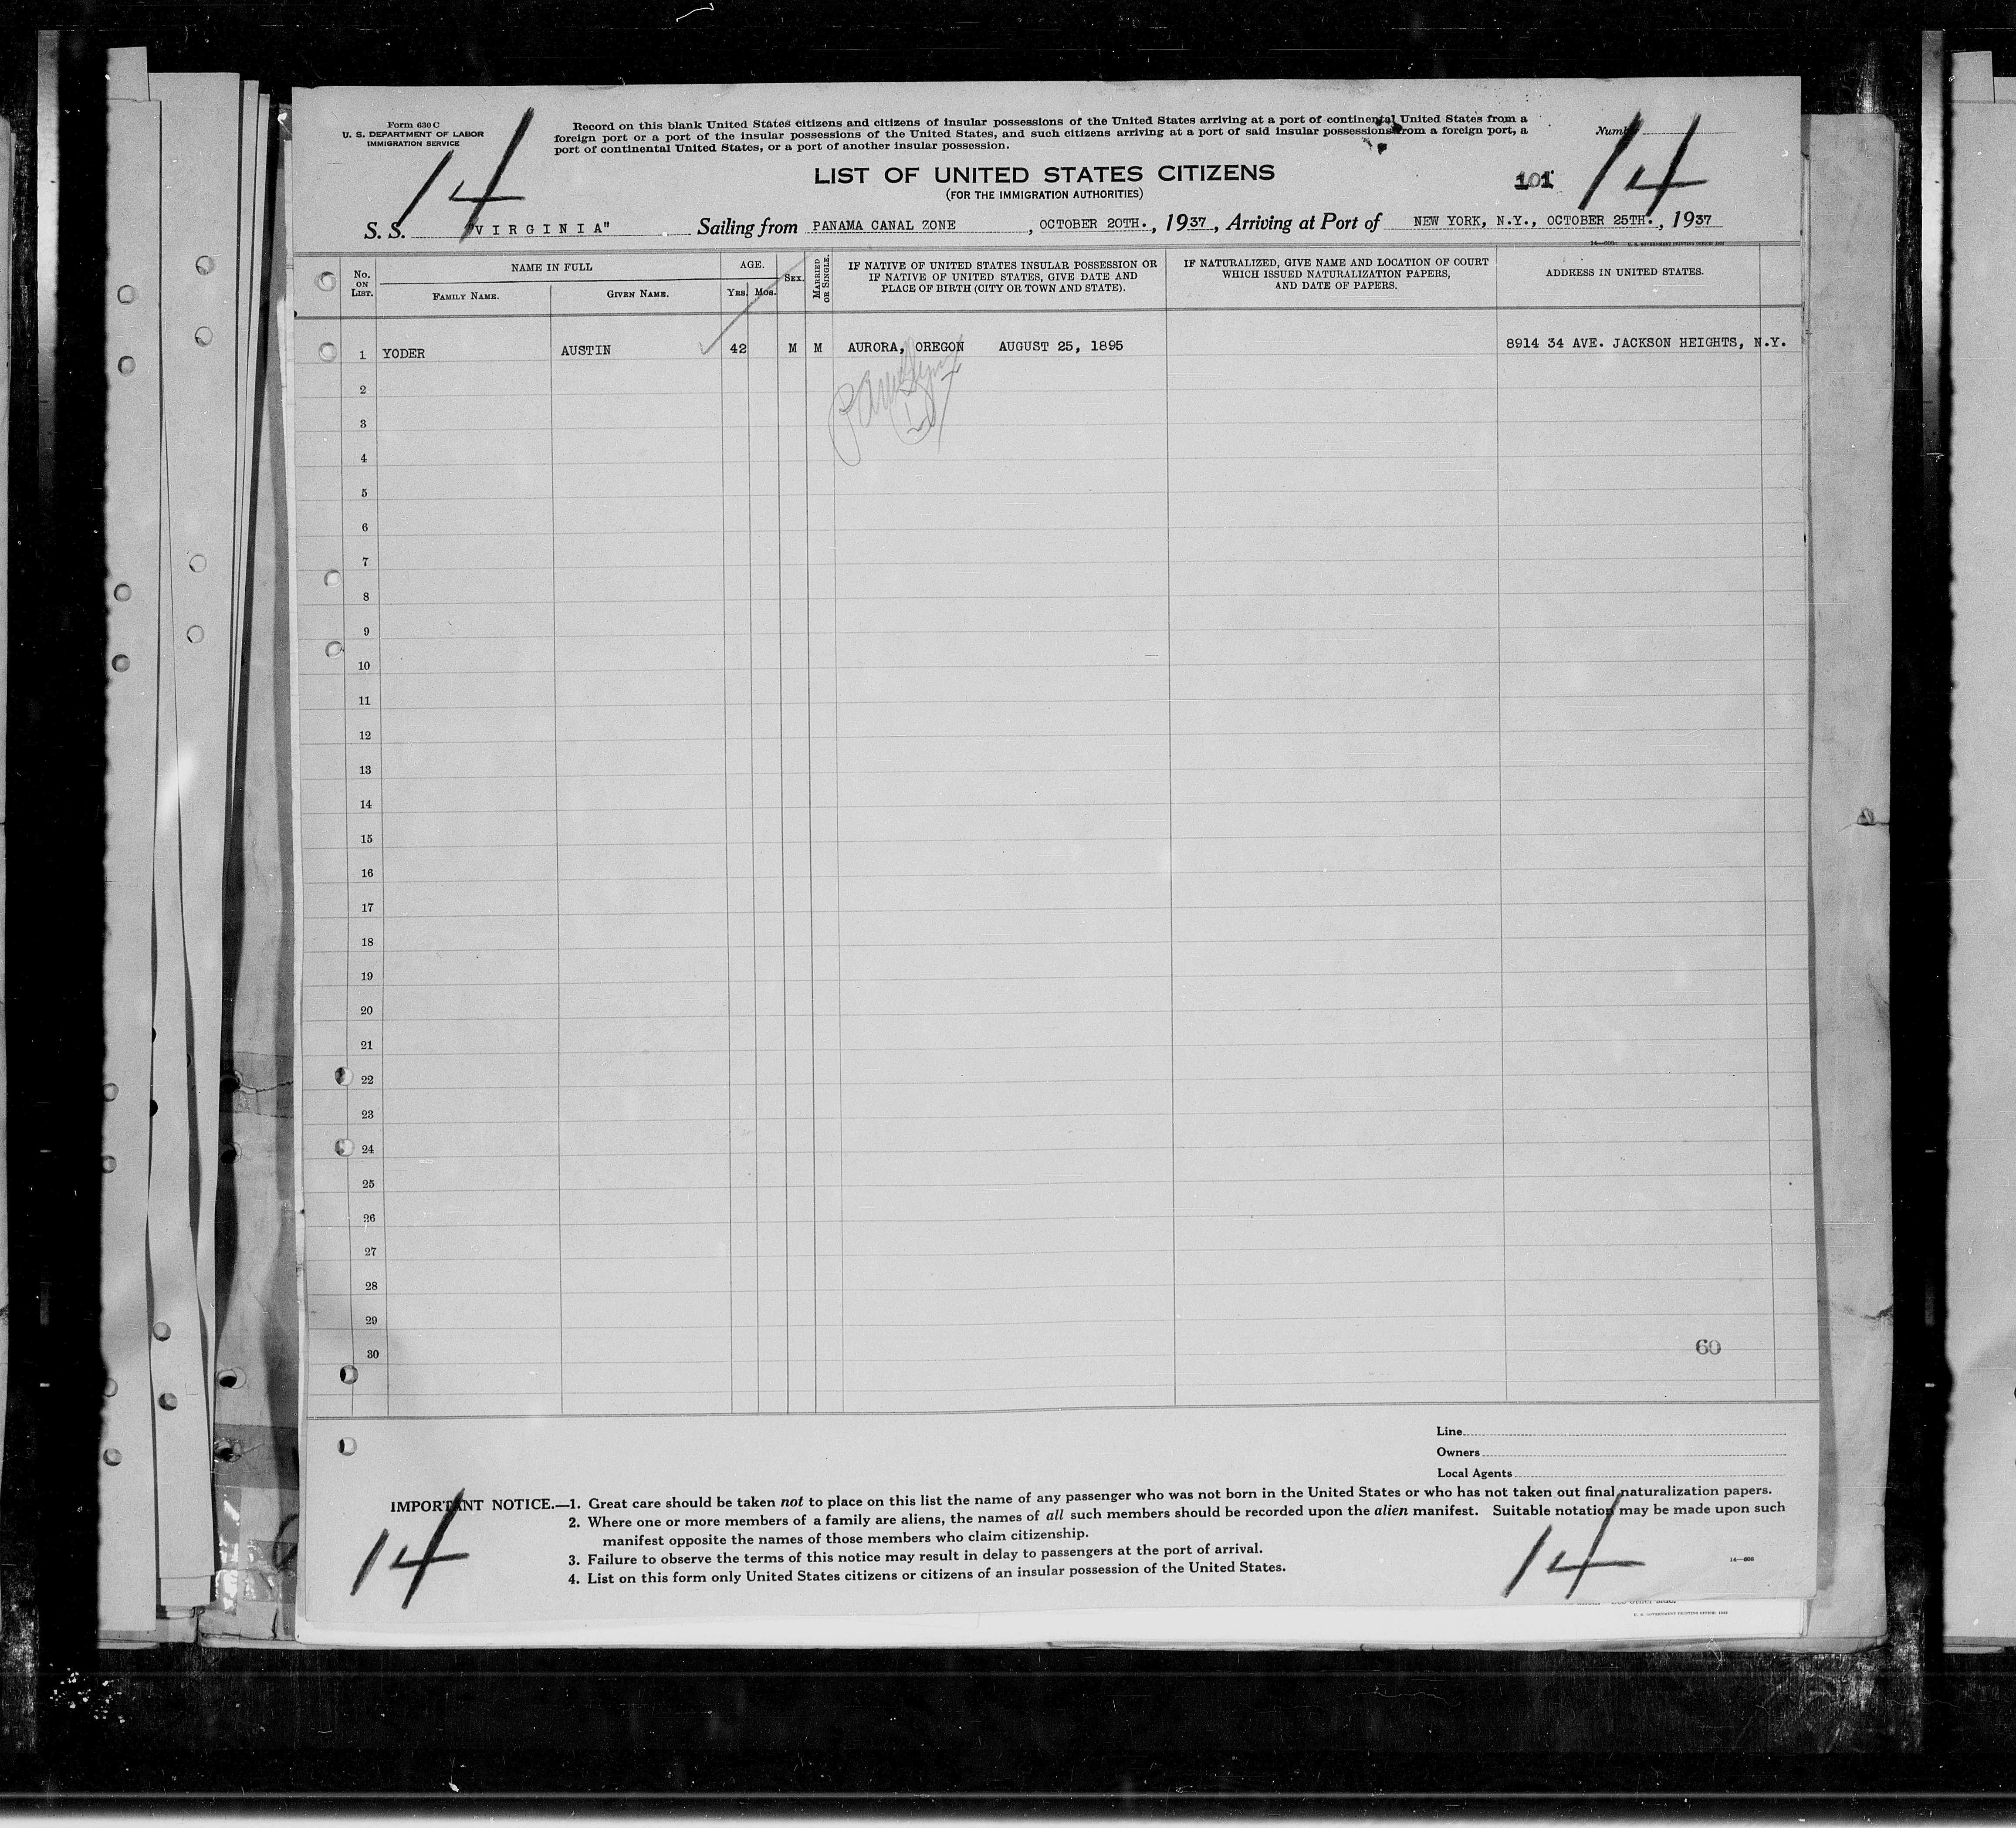 Form 630 C
U. S. DEPARTMENT OF LABOR
IMMIGRATION SERVICE
14
Record on this blank United States citizens and citizens of insular possessions of the United States arriving at a port of continental United States from a
foreign port or a port of the insular possessions of the United States, and such citizens arriving at a port of said insular possessions from a foreign port, a
port of continental United States, or a port of another insular possession.
Number
14
LIST OF UNITED STATES CITIZENS
(FOR THE IMMIGRATION AUTHORITIES)
101
S. S. "VIRGINIA" Sailing from PANAMA CANAL ZONE, OCTOBER 20TH., 1937, Arriving at Port of NEW YORK, N.Y., OCTOBER 25TH., 1937
No. ON LIST.
NAME IN FULL
FAMILY NAME.
GIVEN NAME.
AGE.
YRS. MOS.
SEX.
MARRIED OR SINGLE.
IF NATIVE OF UNITED STATES INSULAR POSSESSION OR
IF NATIVE OF UNITED STATES, GIVE DATE AND
PLACE OF BIRTH (CITY OR TOWN AND STATE).
IF NATURALIZED, GIVE NAME AND LOCATION OF COURT
WHICH ISSUED NATURALIZATION PAPERS,
AND DATE OF PAPERS.
ADDRESS IN UNITED STATES.
1 YODER AUSTIN 42 M M AURORA, OREGON AUGUST 25, 1895 8914 34 AVE. JACKSON HEIGHTS, N.Y.
2
3
4
5
6
7
8
9
10
11
12
13
14
15
16
17
18
19
20
21
22
23
24
25
26
27
28
29
30
60
Line
Owners
Local Agents
IMPORTANT NOTICE.—1. Great care should be taken not to place on this list the name of any passenger who was not born in the United States or who has not taken out final naturalization papers.
2. Where one or more members of a family are aliens, the names of all such members should be recorded upon the alien manifest. Suitable notation may be made upon such
manifest opposite the names of those members who claim citizenship.
3. Failure to observe the terms of this notice may result in delay to passengers at the port of arrival.
4. List on this form only United States citizens or citizens of an insular possession of the United States.
14
14
U. S. GOVERNMENT PRINTING OFFICE